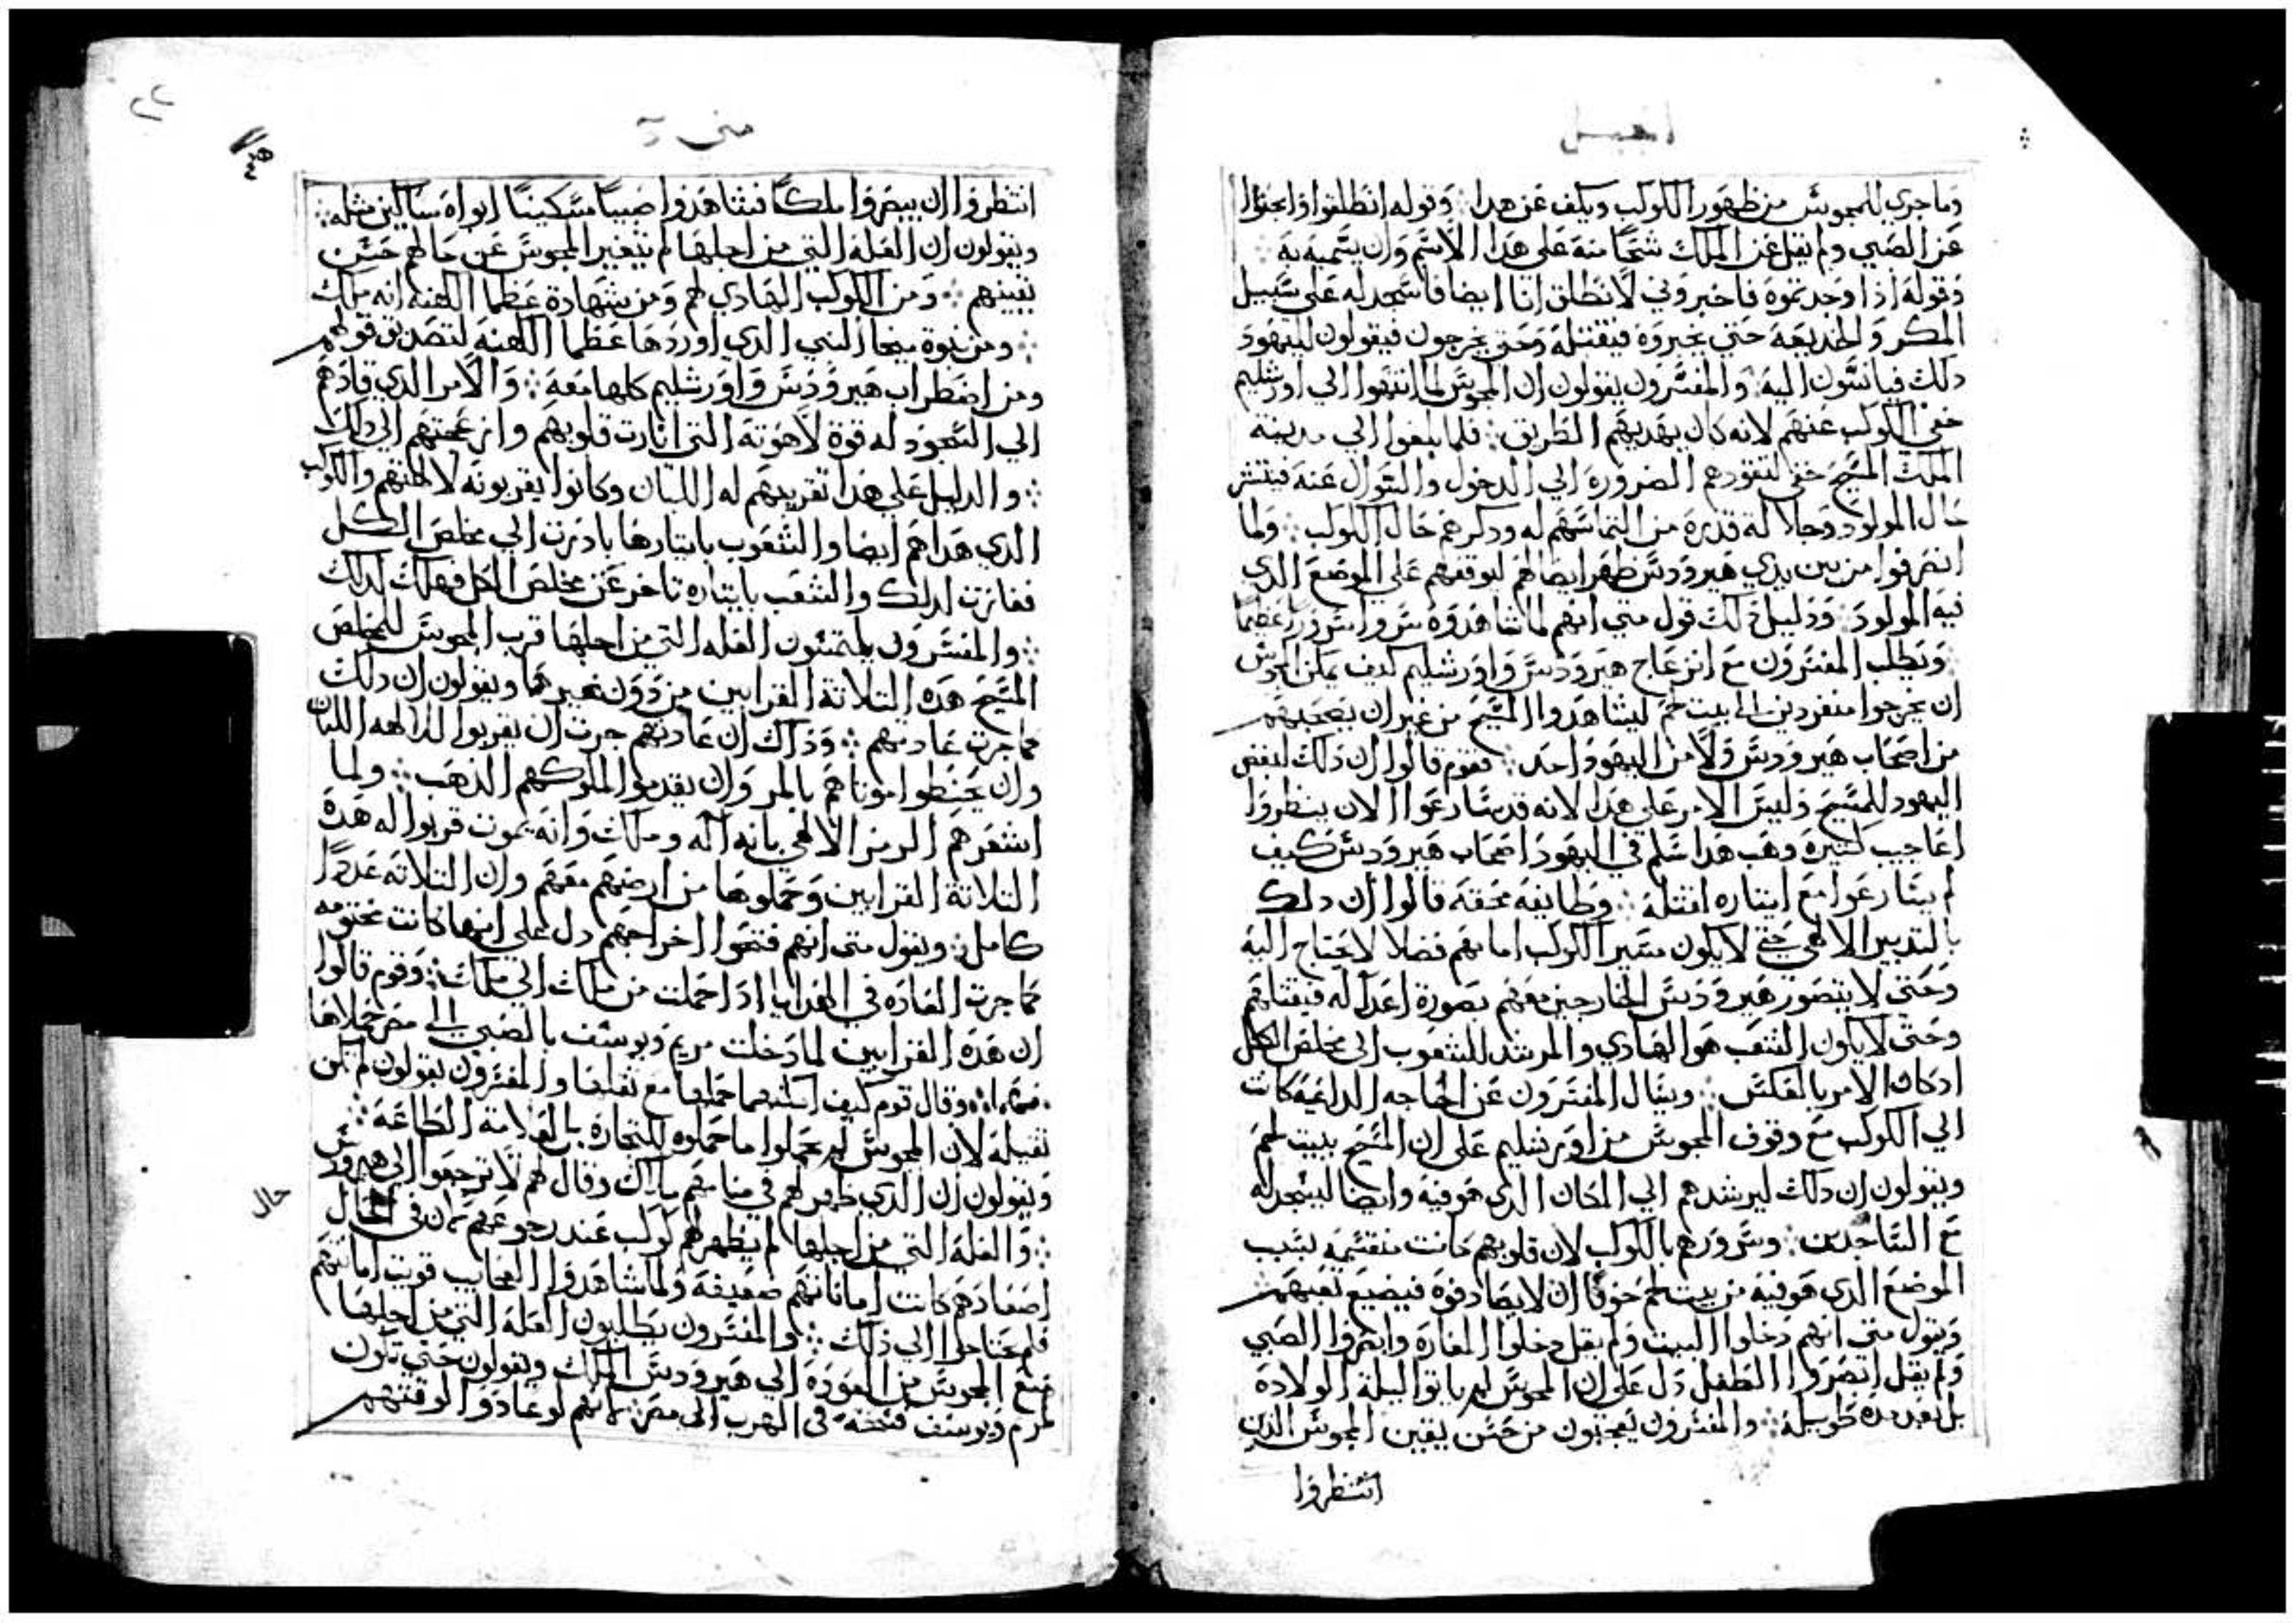 انجيل
وما جري للمجوس من ظهور الكوكب ويكف عن هدا ∴ وقوله انطلقوا فابحثوا
عن الصبي ولم يقل عن الملك شحا منه على هدا الاسم وان يسميه به ∴
وقوله اذا وجدتموه فاخبروني لانطلق انا ايضا فاسجد له على سبيل
المكر والخديعة حتي يخبروه فيقتله وحتي يخرجون فيقولون لليهود
دلك فيانسون اليه ∴ والمفسرون يقولون ان المجوس لما انتهوا الي اورشليم
خفي الكوكب عنهم لانه كان يهديهم الطريق ∴ فلما بلغوا الي مدينة
الملك المسيح خفي لتقودهم الضرورة الي الدخول والسوال عنه فينشر
حال المولود وجلالة قدره من التماسهم له ودكرهم حال الكوكب ∴ ولما
انصرفوا من بين يدي هيرودس ظهر ايضا لهم ليوقفهم على الموضع الدي
فيه المولود ∴ ودليل دلك قول متي انهم لما شاهدوه سروا سرورا عظيما
∴ ويطلب المفسرون مع انزعاج هيرودس واورشليم كيف يمكن المجوس
ان يخرجوا منفردين الى بيت لحم ليشاهدوا المسيح من غير ان يصحبهم
من اصحاب هيرودس ولا من اليهود احد ∴ فقوم قالوا ان دلك لبغض
اليهود للمسيح وليس الامر على هدا لانه قد سارعوا لان ينظروا
اعاجيب كثيرة وهب هدا سلم في اليهود اصحاب هيرودس كيف
لم يسارعوا مع ايثاره لقتله ∴ وطايفه محقة قالوا ان دلك
بالتدبير الالاهي حتي لا يكون مسير الكوكب امامهم فضلا لا يحتاج اليه
وحتي لا يتصور هيرودس الخارجين معهم بصورة اعدا له فيقتلهم
وحتي لا يكون الشعب هو الهادي والمرشد للشعوب الى مخلص الكل
ادكان الامر بالعكس ∴ ويسال المفسرون عن الحاجه الداعيه كانت
الي الكوكب مع وقوف المجوس من اورشليم على ان المسيح ببيت لحم
ويقولون ان دلك ليرشدهم الي المكان الدي هو فيه وايضا ليسجد له
مع الساجدين ∴ وسرورهم بالكوكب لان قلوبهم كانت منقسمه بسبب
الموضع الدي هو فيه من بيت لحم خوفا ان لا يصادفوه فيضيع تعبهم
ويقول متي انهم دخلوا البيت ولم يقل دخلوا المغاره وابصروا الصبي
ولم يقل ابصروا الطفل دل على ان المجوس لم ياتوا ليلة الولادة
بل بعد مدة طويلة ∴ والمفسرون يعجبون من حسن يقين المجوس الدين
انتظروا
٢٢
متي
انتظروا ان يبصروا ملكا فشاهدوا صبيا مسكينا ابواه مساكين مثله ∴
ويقولون ان العلة التي من اجلها لم يتغير المجوس عن حالهم حسن
يقينهم ∴ ومن الكوكب الهادي لهم ومن شهادة عظما الكهنه انه ملك
∴ ومن نبوة ميخا النبي الدي اوردها عظما الكهنه لتصديق قولهم
ومن اضطراب هيرودس واورشليم كلها معه ∴ والامر الدي قادهم
الي السجود له قوة لاهوته التي انارت قلوبهم وازعجتهم الي دلك
∴ والدليل على هدا تقريبهم له اللبان وكانوا يقربونه لالهتهم والكوكب
الدي هداهم ايضا والشعوب بايثارها بادرت الي مخلص الكل
ففازت لدلك والشعب بايثاره تاخر عن مخلص الكل فهلك لدلك
∴ والمفسرون يلتمسون العله التي من اجلها قرب المجوس للمخلص
المسيح هده التلاتة القرابين من دون غيرها ويقولون ان دلك
مما جرت عادتهم ∴ وداك ان عادتهم جرت ان يقربوا للالهه اللبان
وان يحنطوا موتاهم بالمر وان يقدموا لملوكهم الدهب ∴ ولما
اشعرهم الرمز الالاهي بانه اله وملك وانه يموت قربوا له هده
التلاتة القرابين وحملوها من ارضهم معهم وان التلاتة عددا
كامل ∴ ويقول متي انهم فتحوا اخراجهم دل على انها كانت مختومه
كما جرت العاده في الهدايا ادا حملت من ملك الي ملك ∴ وقوم قالوا
ان هده القرابين لما دخلت مريم ويوسف بالصبي الى مصر حملاها
معهما ∴ وقال قوم كيف امكنهما حملها مع ثقلها والمفسرون يقولون لم تكن
تقيله لان المجوس لم يحملوا ما حملوه للتجارة بل لعلامة الطاعة ∴
ويقولون ان الدي ظهر لهم في منامهم ملاك وقال لهم لا ترجعوا الى هيرودس
∴ والعلة التي من اجلها لم يظهر لهم كوكب عند رجوعهم لان في
حال
اصعادهم كانت اماناتهم ضعيفة ولما شاهدوا العجايب قويت امانتهم
فلم يحتاجوا الي دلك ∴ والمفسرون يطلبون العلة التي من اجلها
منع المجوس من العودة الى هيرودس الملك ويقولون حتي تكون
لمريم ويوسف فسحة في الهرب الى مصر لانهم لو عادوا لوقتهم